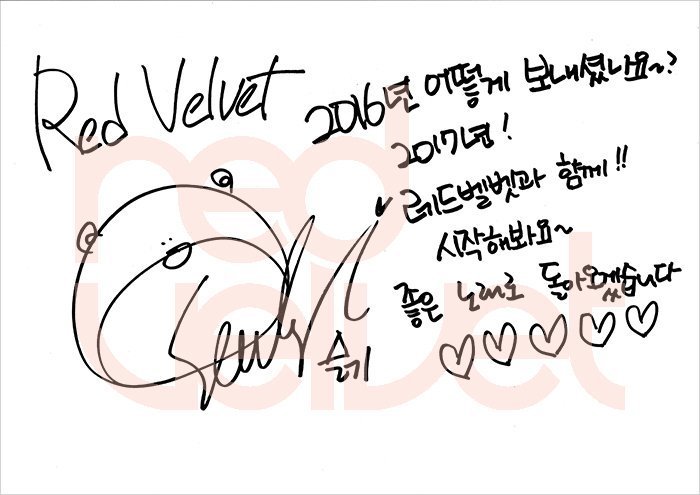 Red Velvet
2016년 어떻게 보내셨나요~?
2017년!
레드벨벳과 함께!!
시작해봐요~
좋은 노래로 돌아오겠습니다
♡♡♡♡♡
Seulgi
슬기
red
velvet